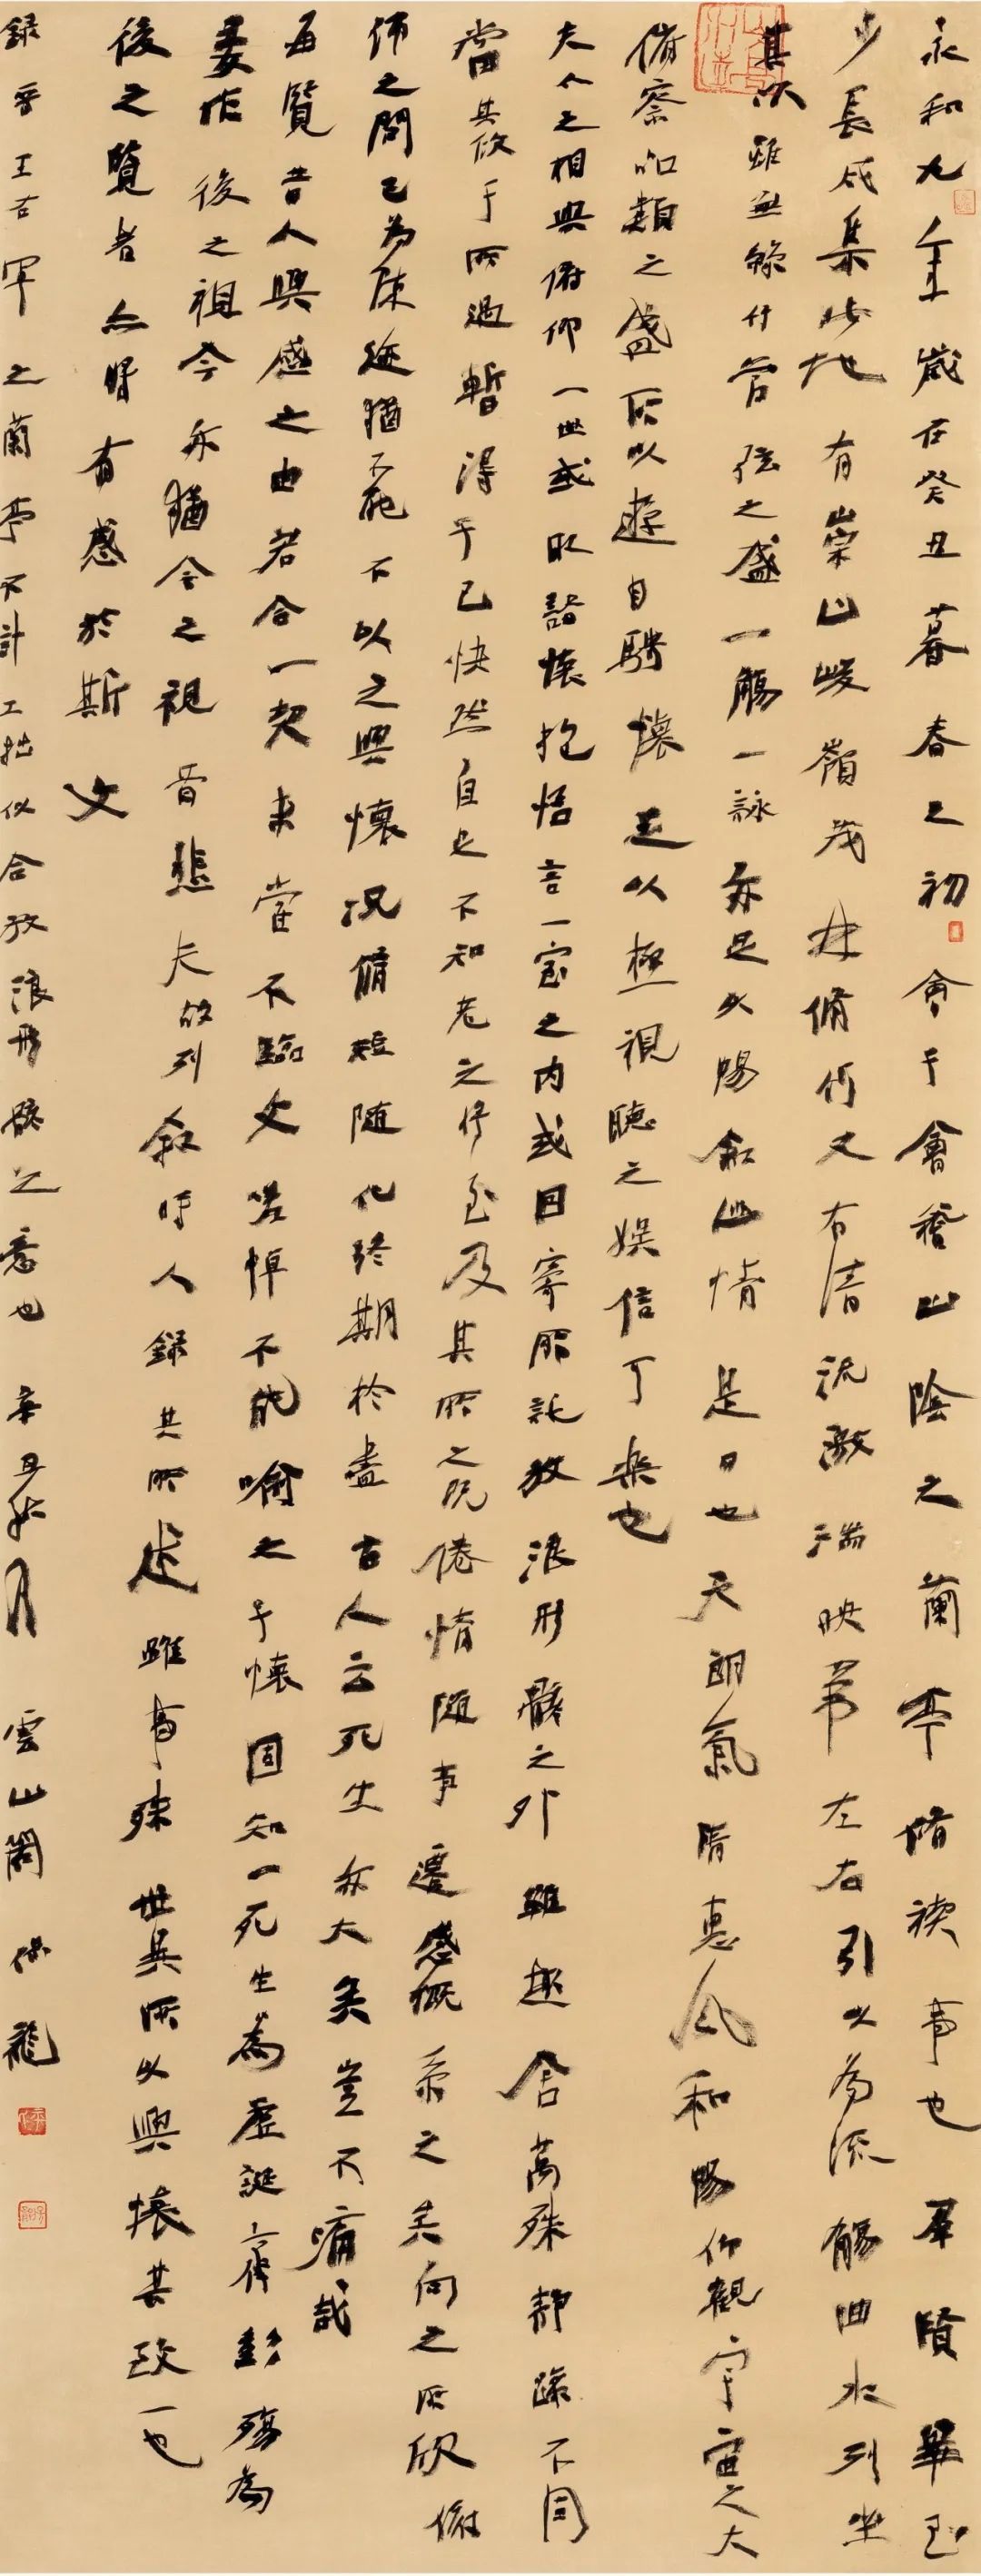 永和九年歲在癸丑暮春之初會于會稽山陰之蘭亭脩禊事也羣賢畢至
少長咸集此地有崇山峻嶺茂林脩竹又有清流激湍映帶左右引以為流觴曲水列坐
其次雖無絲竹管弦之盛一觴一詠亦足以暢敘幽情是日也天朗氣清惠風和暢仰觀宇宙之大
俯察品類之盛所以遊目騁懷足以極視聽之娛信可樂也
夫人之相與俯仰一世或取諸懷抱悟言一室之內或因寄所託放浪形骸之外雖趣舍萬殊靜躁不同
當其欣于所遇暫得于己快然自足不知老之將至及其所之既倦情隨事遷感慨系之矣向之所欣俯
仰之間已為陳迹猶不能不以之興懷況脩短隨化終期於盡古人云死生亦大矣豈不痛哉
每覽昔人興感之由若合一契未嘗不臨文嗟悼不能喻之于懷固知一死生為虛誕齊彭殤為
妄作後之視今亦猶今之視昔悲夫故列敘時人錄其所述雖事殊世異所以興懷其致一也
後之覽者亦將有感於斯文
錄晉王右軍之蘭亭不計工拙似合放浪形骸之意也辛丑秋月雲山閣龍